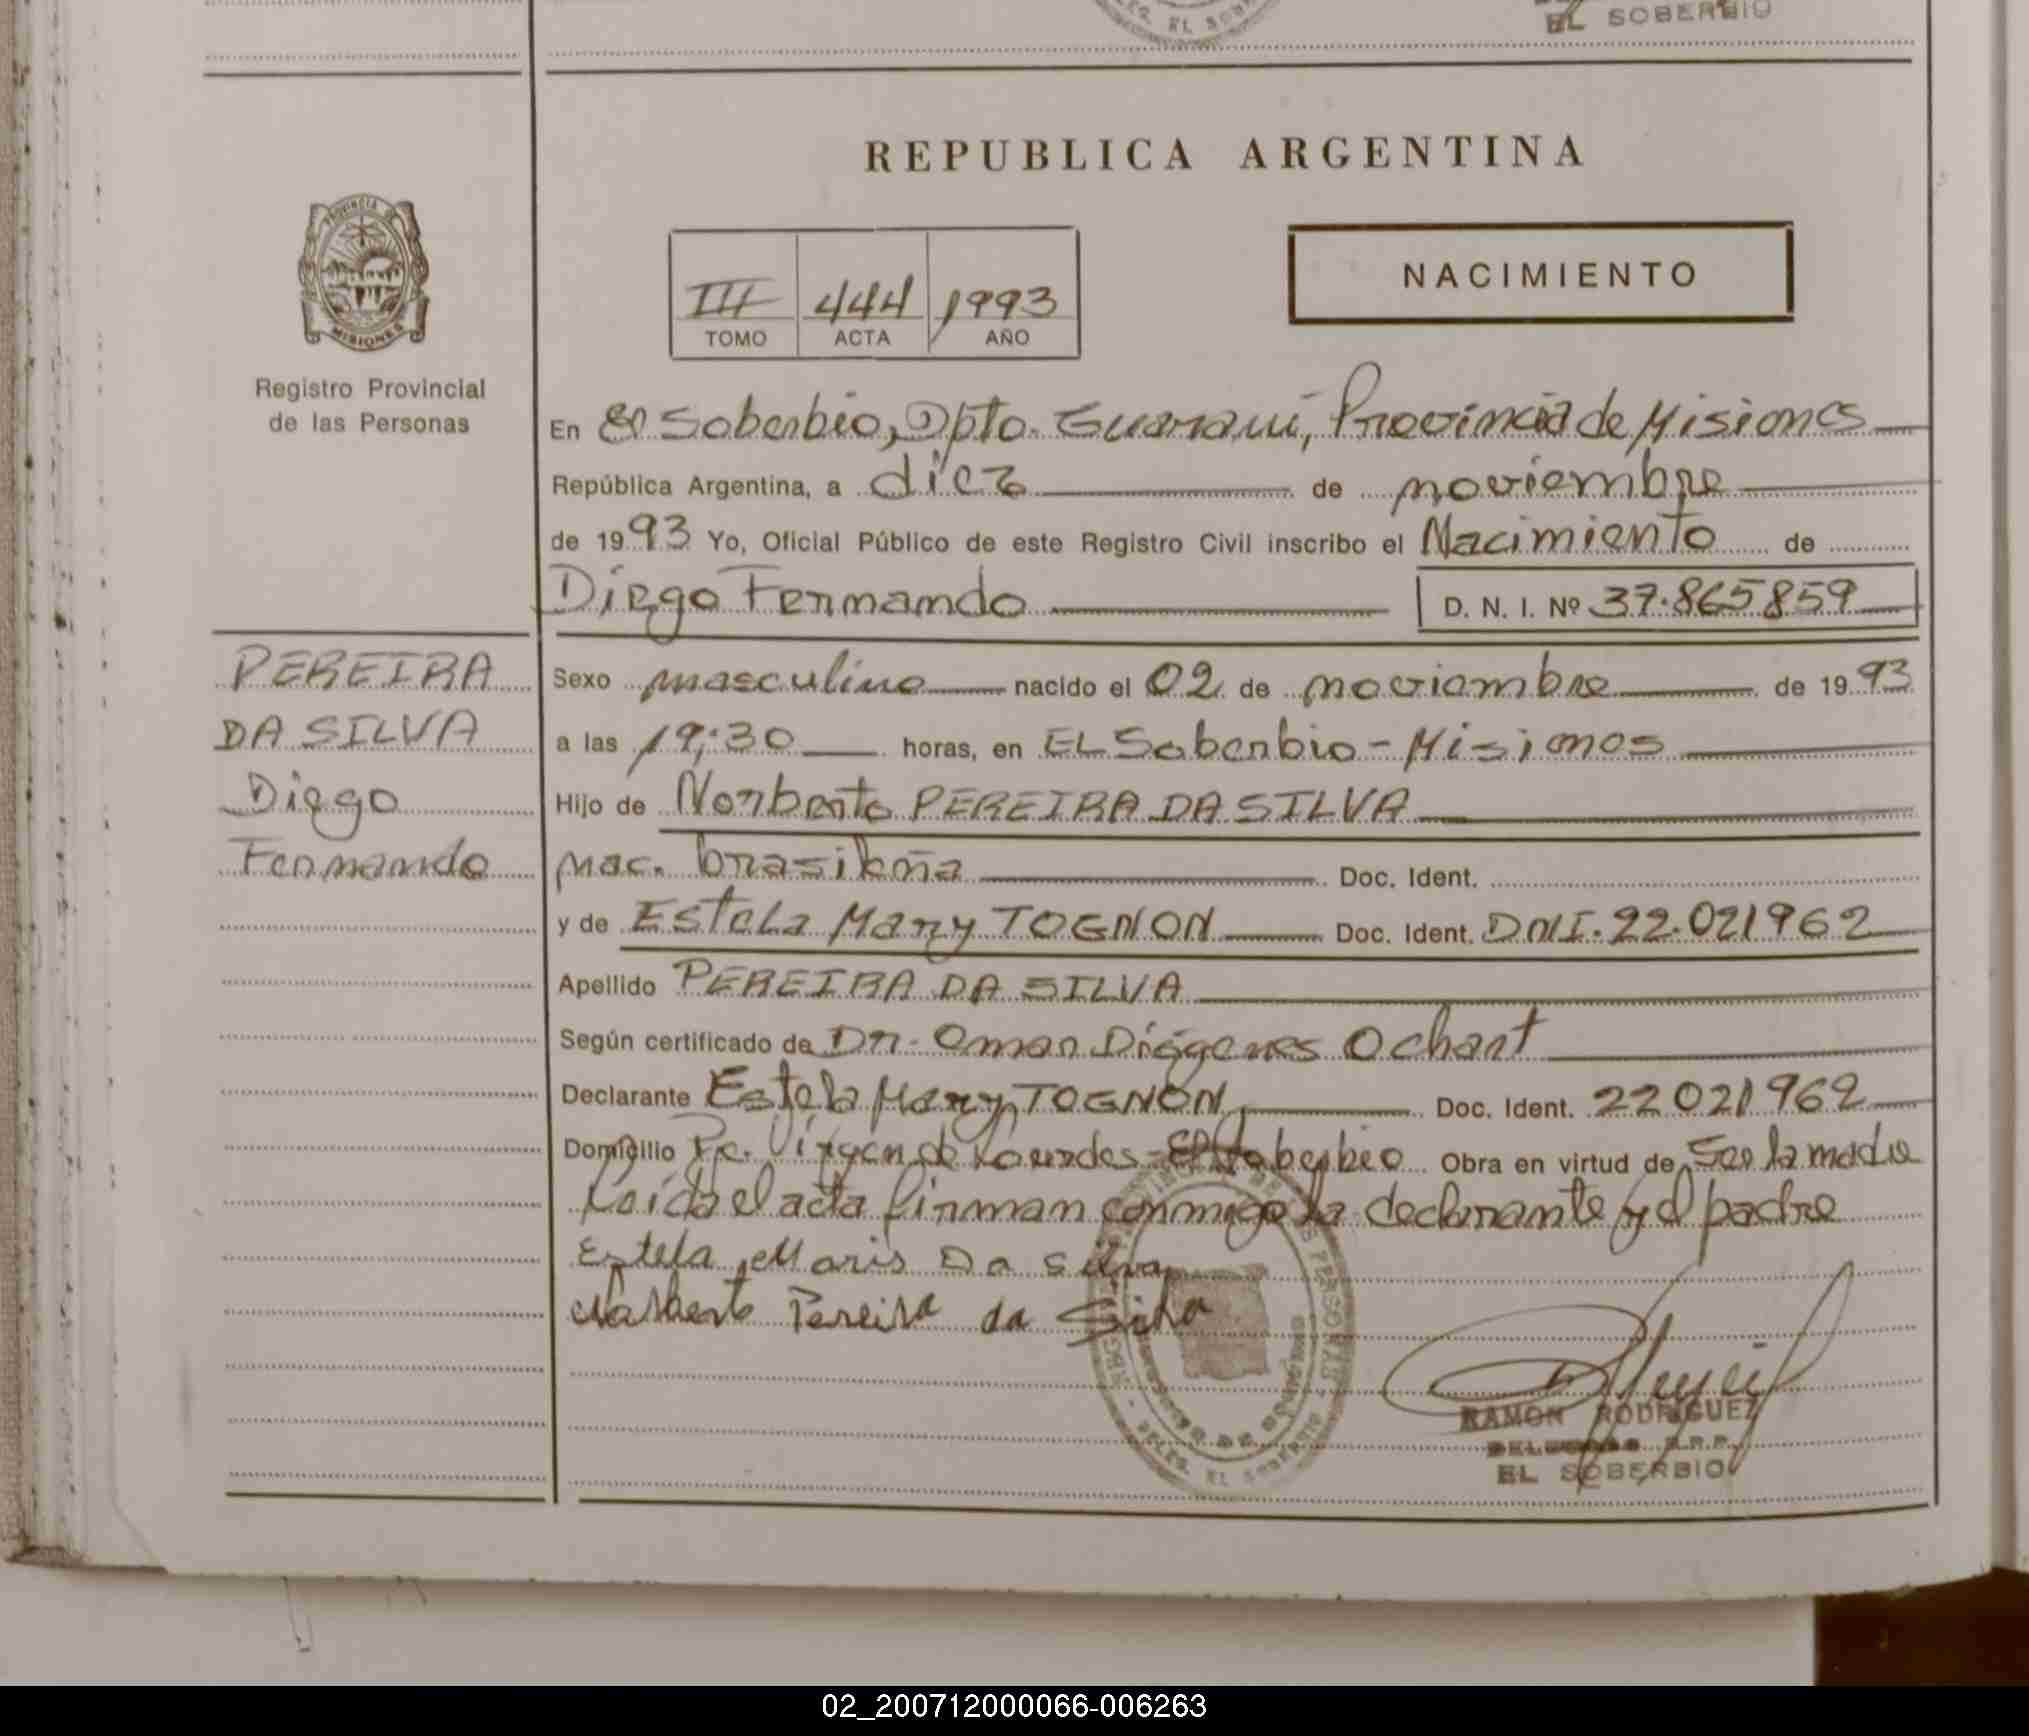 EL SOBERBIO
DELEG. EL SOBERBIO
REPUBLICA ARGENTINA
PROVINCIA DE
MISIONES
NACIMIENTO
III 444 1993
TOMO ACTA AÑO
Registro Provincial
de las Personas
En El Soberbio, Dpto. Guaraní, Provincia de Misiones
República Argentina, a diez de noviembre
de 1993 Yo, Oficial Público de este Registro Civil inscribo el Nacimiento de
Diego Fernando D. N. I. Nº 37.865859
PEREIRA
DA SILVA
Diego
Fernando
Sexo masculino nacido el 02 de noviembre de 1993
a las 19:30 horas, en EL Soberbio - Misiones
Hijo de Norberto PEREIRA DA SILVA
nac. brasileña Doc. Ident.
y de Estela Mary TOGNON Doc. Ident. DNI. 22.021962
Apellido PEREIRA DA SILVA
Según certificado de Dr. Omar Diógenes Ochart
Declarante Estela Mary TOGNON Doc. Ident. 22021962
Domicilio Pje. Virgen de Lourdes - El Soberbio Obra en virtud de Ser la madre
Leída el acta firman conmigo la declarante y el padre
Estela Maris Da Silva
Norberto Pereira da Silva
RAMON RODRIGUEZ
R.P.P.
EL SOBERBIO
DELEG. EL SOBERBIO
02_200712000066-006263